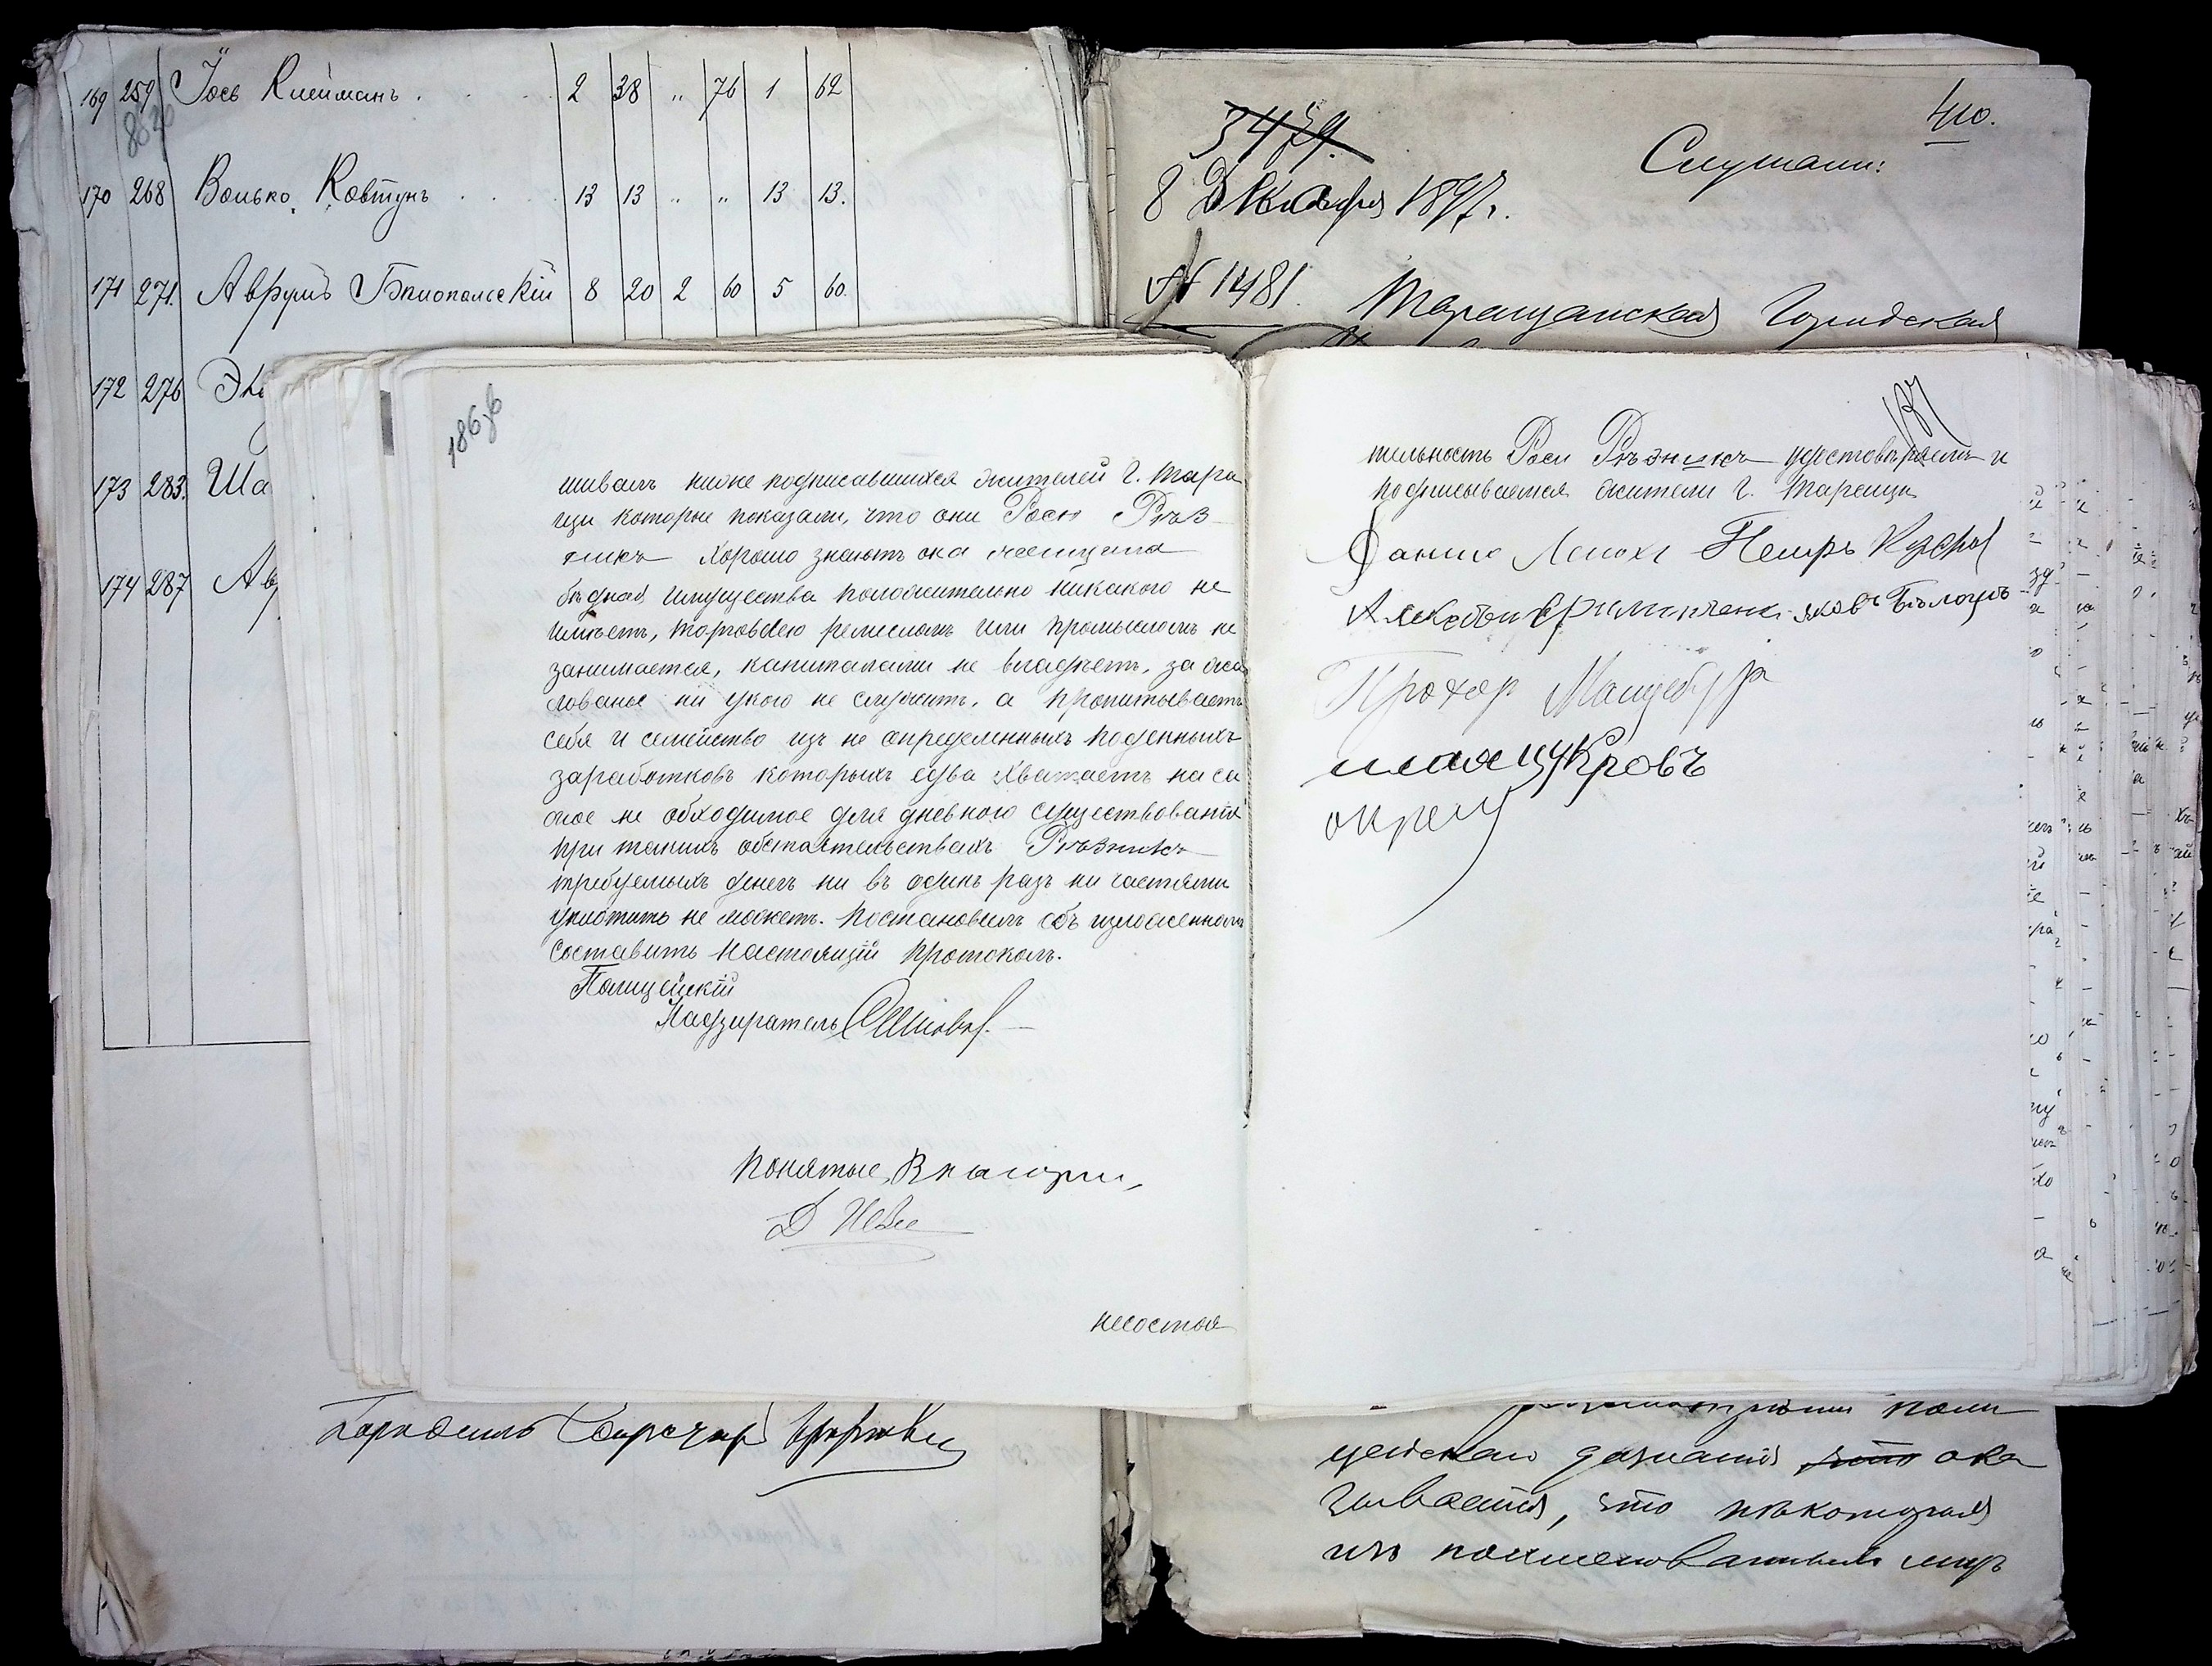 169 259 Іось Клейманъ . . . 2 38 " 76 1 62
170 268 Волько Ковтунъ . . . 13 13 " " 13 13.
171 271. Аврумъ Бялопольскій 8 20 2 60 5 60.
172 276
173 283. Ша
174 287 Ав
3479.
410.
Слушали:
8 Декабря 1897 г.
№ 1481.
Таращанская Городская
186об
шивалъ ниже подписавшихся жителей г. Тара
щи которые показали, что они Росю Рѣз
никъ хорошо знаютъ она женщина
бѣдная, имущества положительно никакого не
имѣетъ, торговлею ремесломъ или промысломъ не
занимается, капиталами не владѣетъ, за жа
лованье ни укого не служитъ, а пропитываетъ
себя и семейство изъ не определенныхъ поденныхъ
заработковъ которыхъ едва хватаетъ на са
мое не обходимое для дневного существованія
при такихъ обстоятельствахъ Рѣзникъ
требуемыхъ денегъ ни въ одинъ разъ ни частями
уплотить не можетъ. Постановилъ объ изложенномъ
составить настоящій протоколъ.
Полицейскій
Надзиратель
Понятые,
несостоя
187
тельность Роси Рѣзникъ удостовѣряемъ и
подписываемся жители г. Таращи
Петръ
Яковъ
Прохор
цукровъ
поли
цейскаго дознанія что ока
зывается, что нѣкоторыя
изъ поименованныхъ лицъ